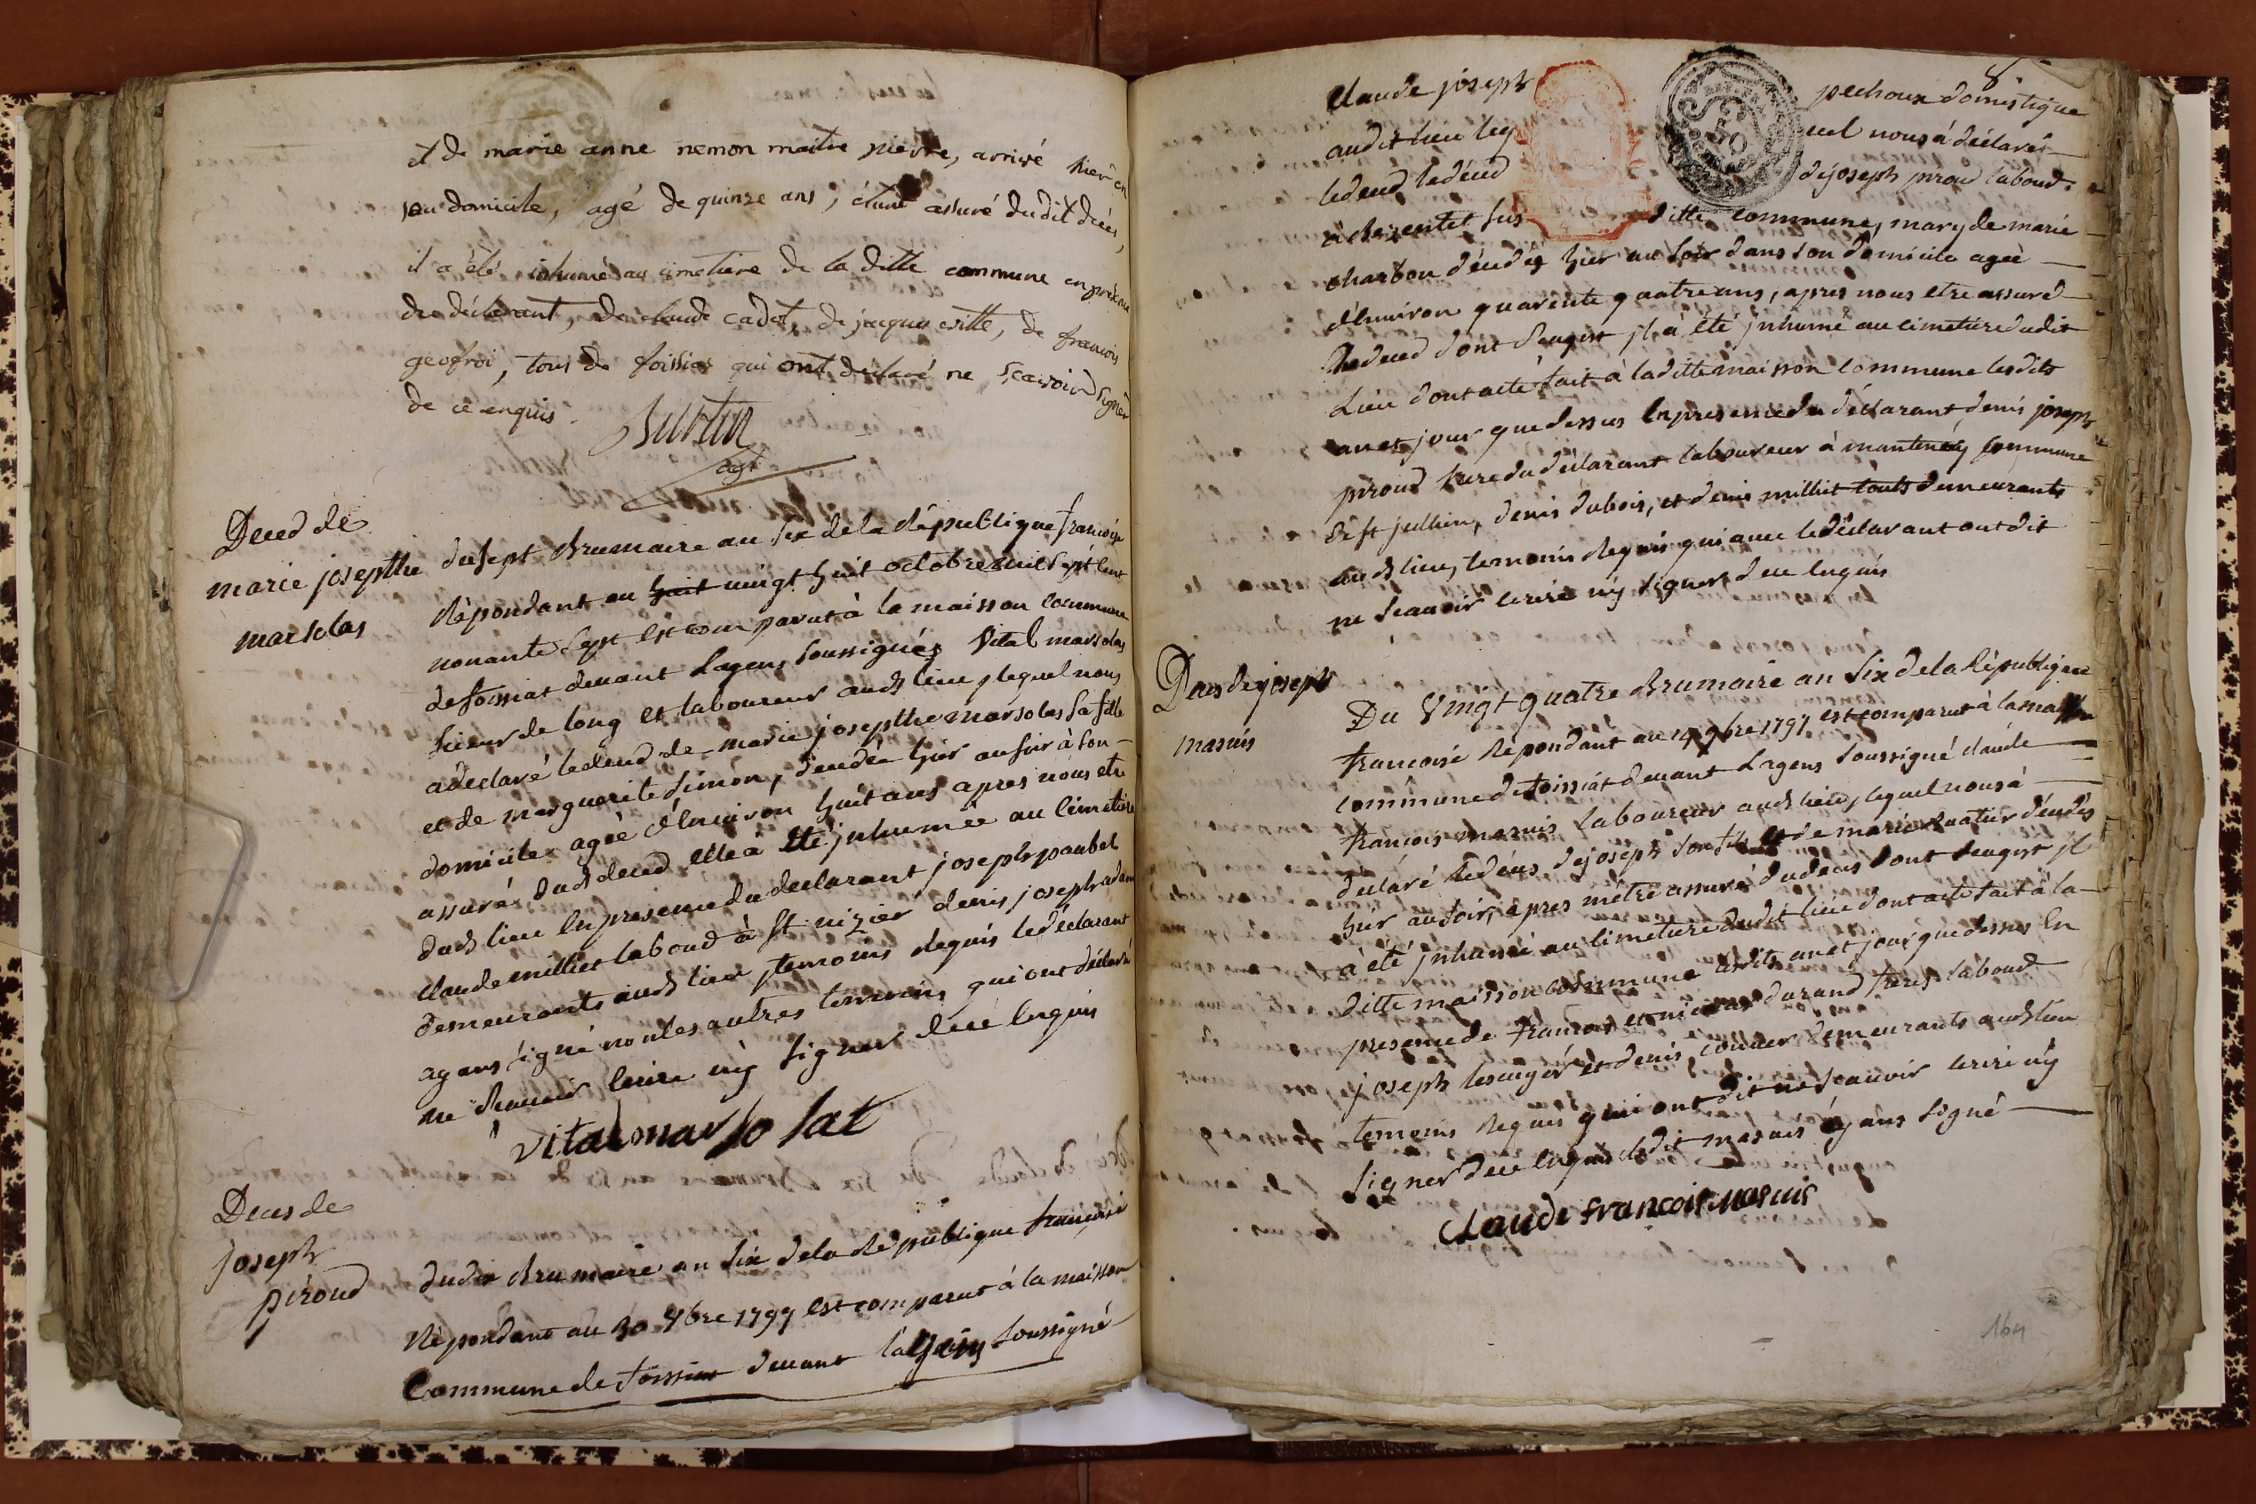 et de marie anne nemon maitre pierre, arrivé hier en
son domicile, agé de quinze ans, étant assuré dudit décés,
il a été inhumé au cimetiere de la ditte commune en présence
du déclarant, de claude cadot, de jacquesville, de francois
geofroi, tous de foissiat qui ont declaré ne scavoir signer
de ce enquis.
agt
Deced de
marie josepthe
marsolas
du sept Brumaire an six de la République francoise
Répondant au huit vingt huit octobre mil sept cent
nonante sept est comparut à la maisson commune
de foissiat devant Lagens soussignés Vital marsolas
sieur de long et laboureur audt lieu, lequel nous
a déclaré le deced de marie josepthe marsolas sa fille
et de marguerite Simon, décédée hier au soir à son
domicile agée d'Environ huit ans apres nous etre
assuré dudt deced elle à été jnhumée au cimetiere
dudt lieu En presence du declarant joseph paubel
claude milliet laboud à St nizier denis joseph adam
demeurants audt lieu temoins requis le déclarant
ayans signé non les autres temoins qui ont déclaré
ne Scavoir écrire n'y signer de ce Enquis
vital marsolat
Deces de
joseph
piroud
du dix Brumaire an Six de la République francoise
Répondant au 30 9bre 1797 est comparut à la maisson
Commune de foissiat devant Lagens soussigné
8
Claude joseph pechoux domestique
audit lieu leq uel nous à déclaré
le deced de joseph piroud laboud.
à charentet sus ditte commune, mary de marie
charbon décédé hier au soir dans son domicile ageé
d'Environ quarente quatre ans, apres nous etre assuré
du deced dont Seagist jl à été jnhumé au cimetiere dudit
Lieu dont acte fait à laditte maisson commune lesdits
an et jour que dessus En presence du déclarant denis joseph
piroud frere du déclarant laboureur à mantenay commune
de St jullien, denis dubois, et denis milliet touts demeurants
audt lieu, temoins Requis qui avec le déclarant ont dit
ne Scavoir écrire n'y signer de ce Enquis
Deces de joseph
masuis
Du Vingt quatre Brumaire an Six de la République
francoise Répondant au 14 9bre 1797 est comparut à la maisson
commune de foissiat devant Lagens soussigné claude
francois masuis laboureur audt lieu, lequel nous à
declaré le déces de joseph son fils et de marie décedés
hier au soir, apres m'étre assuré du deces dont Seagist jl
à été jnhumé au cimetiere dudit lieu dont acte fait à la
ditte maisson commune lesdits an et jour que dessus En
presence de francois et nicolas durand freres laboud
joseph et denis demeurants audt lieu
temoins Requis qui ont dit ne Scavoir écrire n'y
signer de ce Enquis ledit masuis ayans signé
Claude francois masuis
164